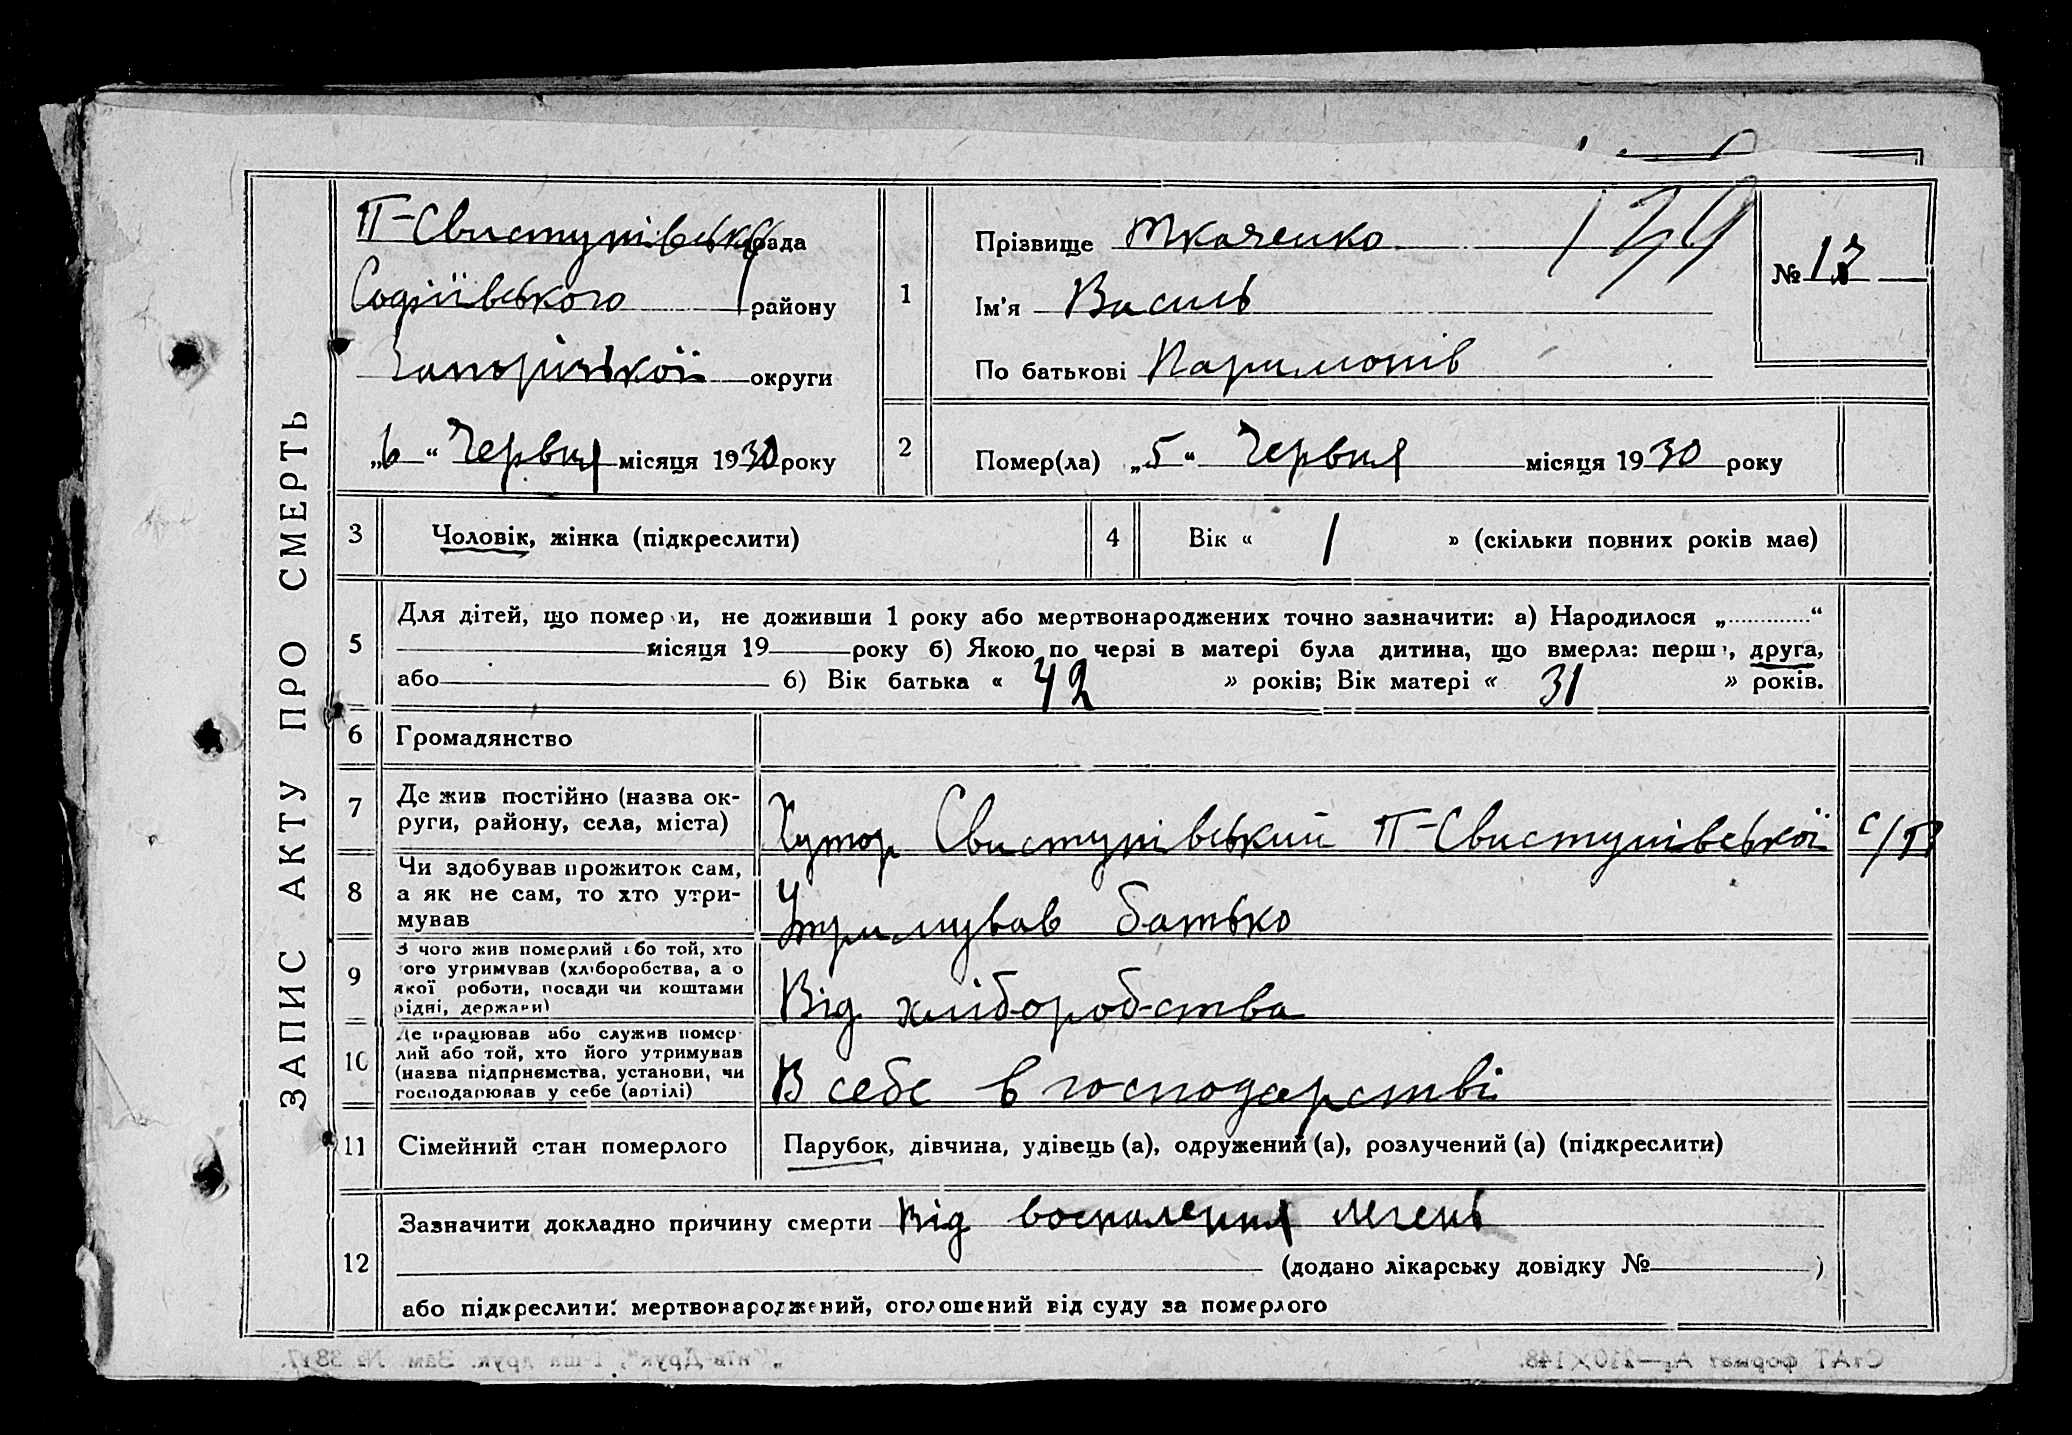 П-Свистунівська рада
Софіївського району
Запорізької округи
„6“ Червня місяця 1930 року
1
Прізвище Ткаченко
129
Ім'я Василь
По батькові Паримонів
№ 13
2
Помер(ла) „5“ Червня місяця 1930 року
ЗАПИС АКТУ ПРО СМЕРТЬ
3 Чоловік, жінка (підкреслити)
4 Вік « 1 » (скільки повних років має)
5
Для дітей, що помер и, не доживши 1 року або мертвонароджених точно зазначити: а) Народилося „.............“
місяця 19 року б) Якою по черзі в матері була дитина, що вмерла: перш , друга,
або б) Вік батька « 42 » років; Вік матері « 31 » років.
6 Громадянство
7
Де жив постійно (назва ок-
руги, району, села, міста)
Хутор Свистунівський П-Свистунівської с/р
8
Чи здобував прожиток сам,
а як не сам, то хто утри-
мував
Утримував батько
9
З чого жив померлий або той, хто
ого утримував (хліборобства, а о
якої роботи, посади чи коштами
рідні, держави)
Від хліборобства
10
Де працював або служив помер-
лий або той, хто його утримував
(назва підприємства, установи, чи
господарював у себе (артілі)
В себе в господарстві
11 Сімейний стан померлого
Парубок, дівчина, удівець (а), одружений (а), розлучений (а) (підкреслити)
12
Зазначити докладно причину смерти Від воспалення легень
(додано лікарську довідку № )
або підкреслити: мертвонароджений, оголошений від суду за померлого
СтАТ формат А₅—210×148.